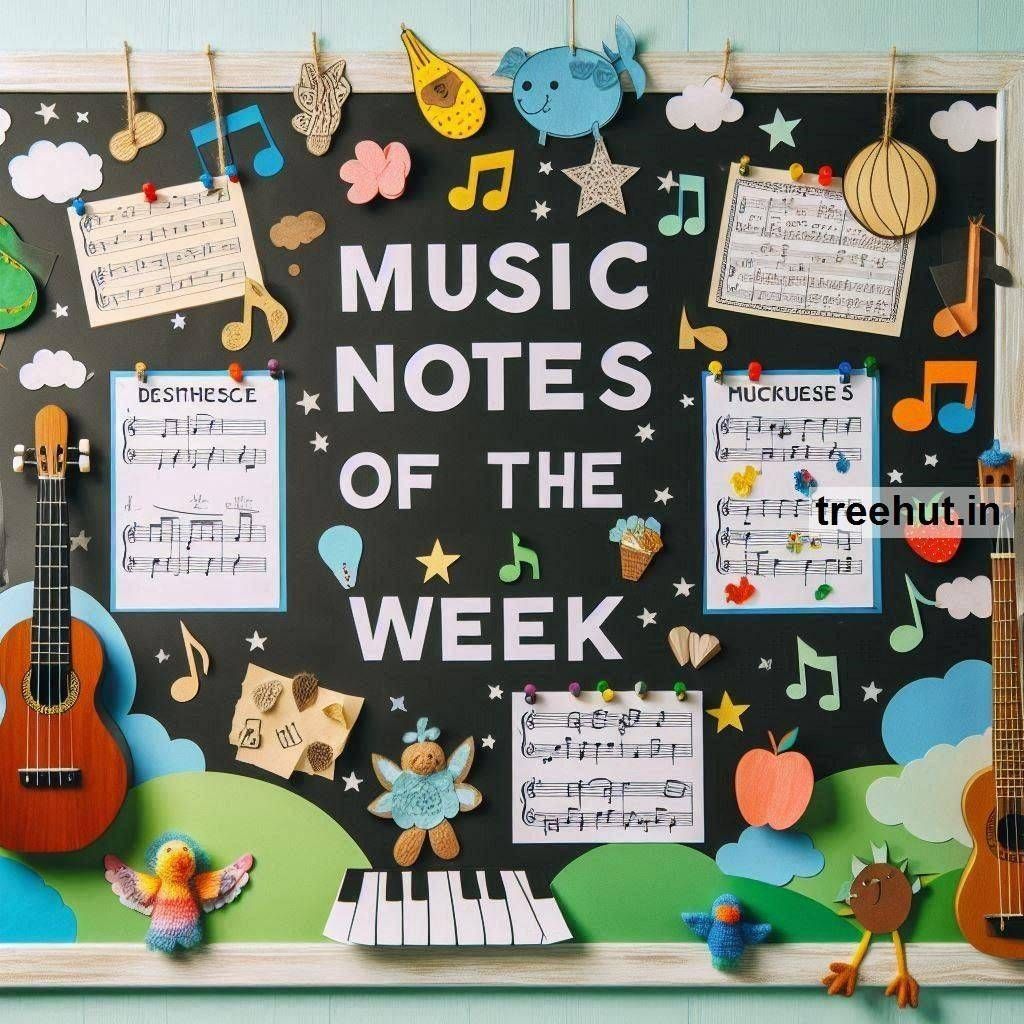 MUSIC
NOTES
OF THE
WEEK
DESTHESCE
MUCKUESES
treehut.in